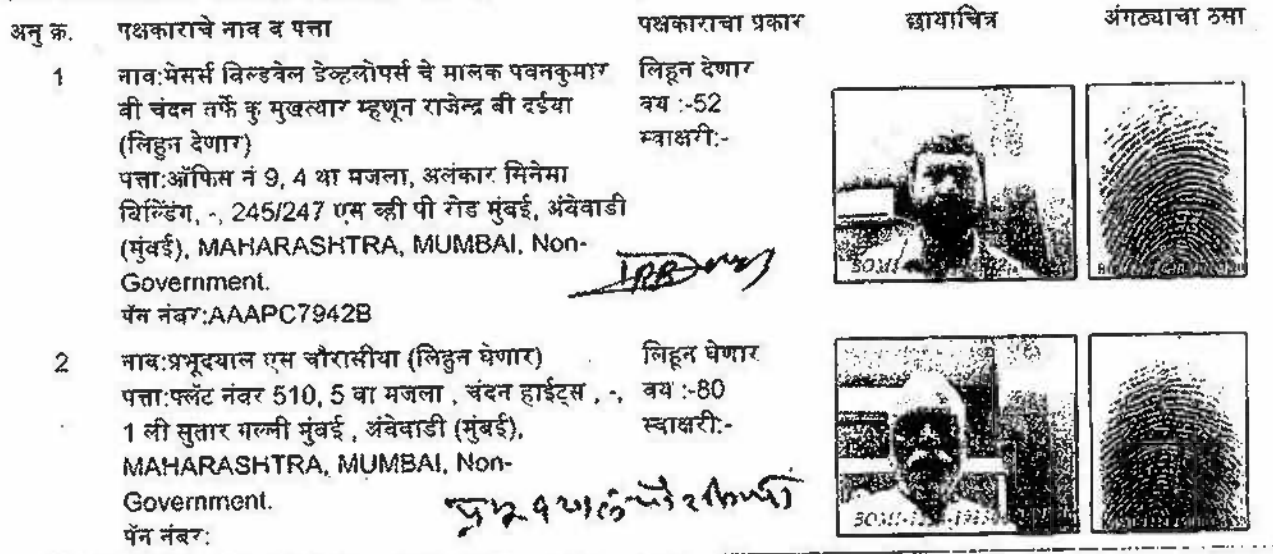 अनु क्र. पक्षकाराचे नाव व पत्ता पक्षकाराचा प्रकार छायाचित्र अंगठ्याचा ठसा
1 नाव:मेसर्स बिल्डवेल डेव्हलोपर्स चे मालक पवनकुमार लिहून देणार
बी चंदन तर्फे कु मुखत्यार म्हणून राजेन्द्र बी दईया वय :-52
(लिहून देणार) स्वाक्षरी:-
पत्ता:ऑफिस नं 9, 4 था मजला, अलंकार सिनेमा
बिल्डिंग, -, 245/247 एस व्ही पी रोड मुंबई, अंबेवाडी
(मुंबई), MAHARASHTRA, MUMBAI, Non-
Government.
पॅन नंबर:AAAPC7942B
2 नाव:प्रभूदयाल एस चौरासीया (लिहून घेणार) लिहून घेणार
पत्ता:फ्लॅट नंबर 510, 5 वा मजला , चंदन हाईट्स , -, वय :-80
1 ली सुतार गल्ली मुंबई , अंबेवाडी (मुंबई), स्वाक्षरी:-
MAHARASHTRA, MUMBAI, Non-
Government.
पॅन नंबर: